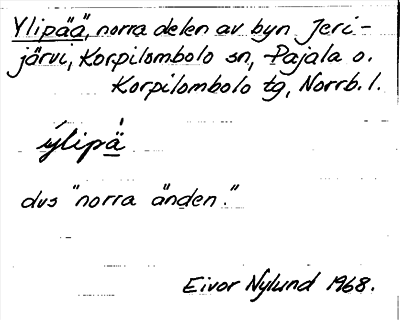 Ylipää, norra delen av byn Jeri-
järvi, Korpilombolo sn, Pajala o.
Korpilombolo tg, Norrb. l.
ýlipä̀
dvs "norra änden."
Eivor Nylund 1968.